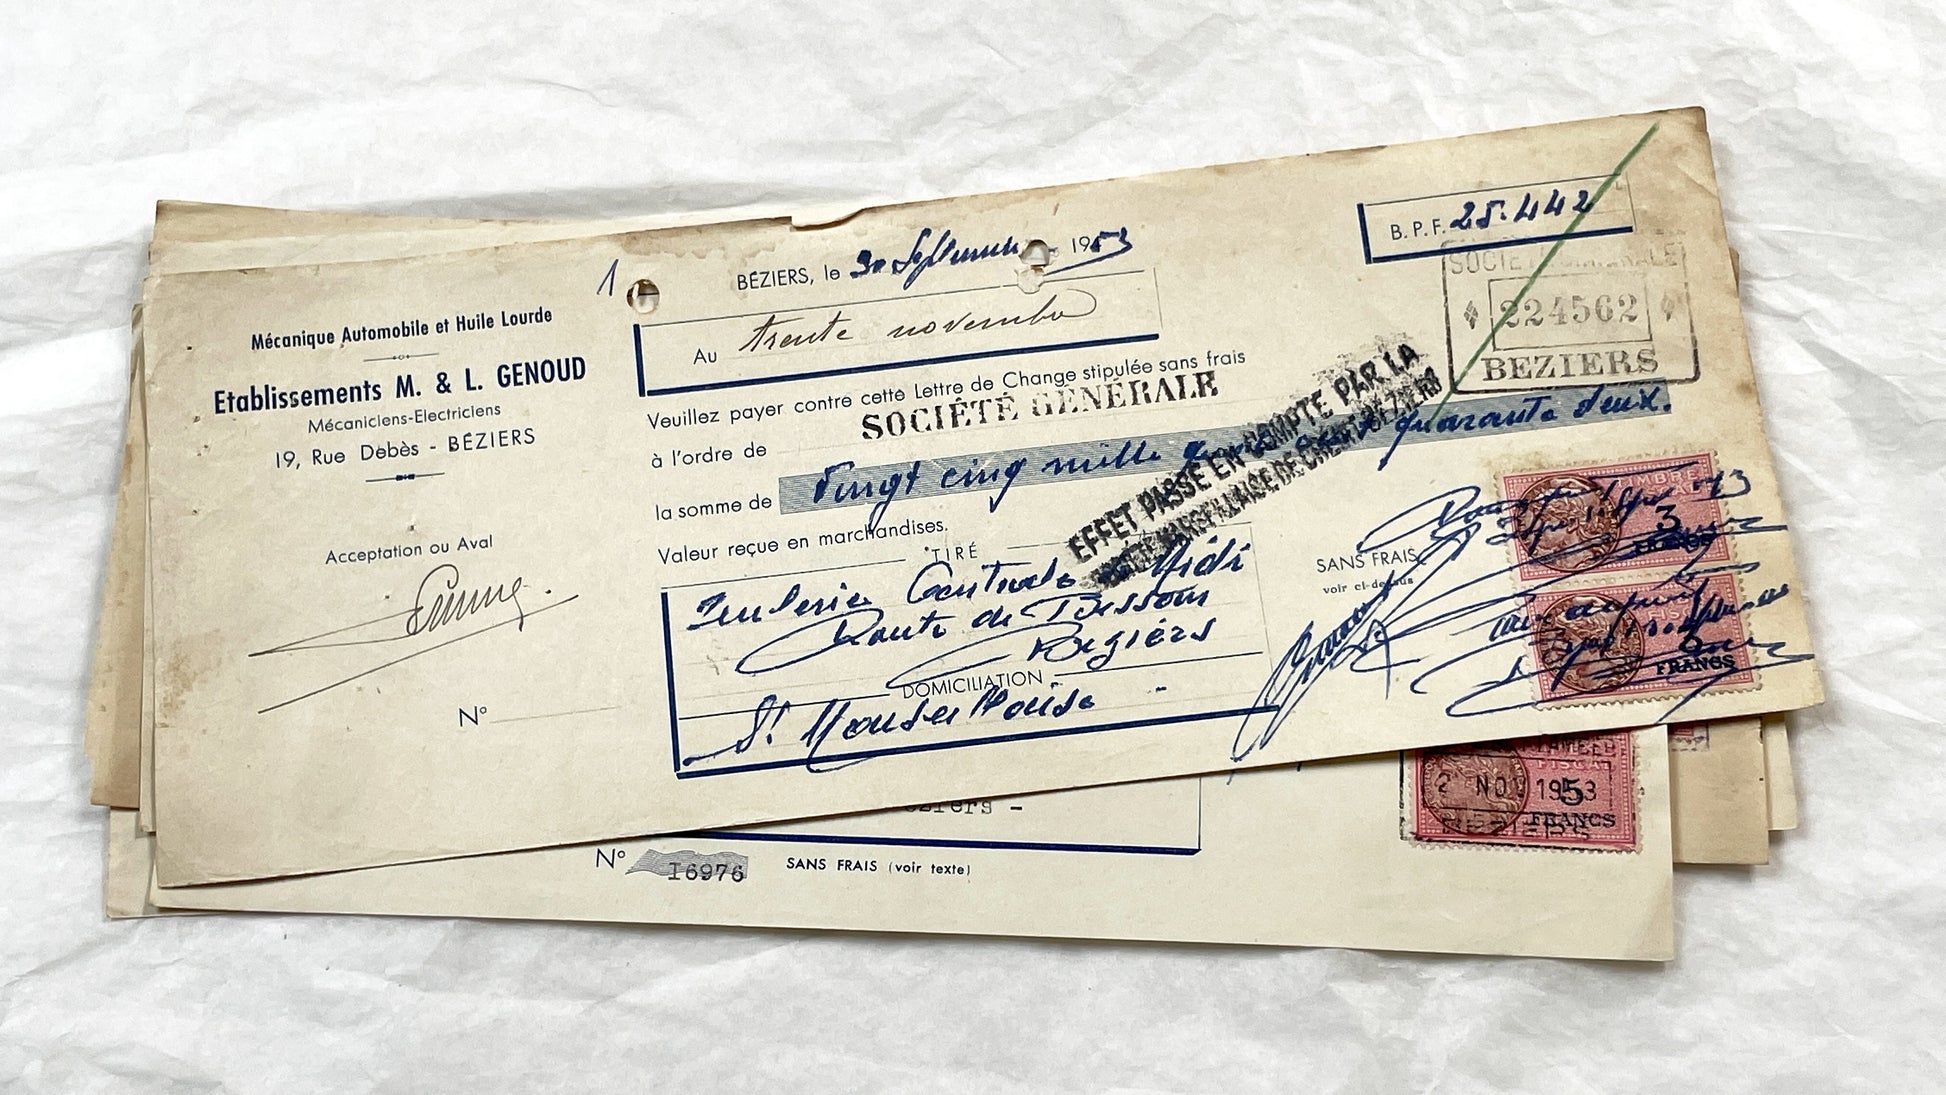 Mécanique Automobile et Huile Lourde
Etablissements M. & L. GENOUD
Mécaniciens-Electriciens
19, Rue Debès - BÉZIERS
Acceptation ou Aval
N°
1
BÉZIERS, le 30 Septembre 1953
Au trente novembre
Veuillez payer contre cette Lettre de Change stipulée sans frais
à l'ordre de SOCIÉTÉ GÉNÉRALE
la somme de Vingt cinq mille quatre cent quarante deux.
Valeur reçue en marchandises.
TIRÉ
Centrale Midi
Route de Bessan
Béziers
DOMICILIATION
B.P.F. 25.442
SOCIÉTÉ GÉNÉRALE
224562
BEZIERS
EFFET PASSÉ EN COMPTE PAR LA
SOCIÉTÉ MARSEILLAISE DE CRÉDIT BÉZIERS
SANS FRAIS
voir ci-dessus
TIMBRE
FISCAL
3
FRANCS
FRANCS
ziers -
N° I6976
SANS FRAIS (voir texte)
FISCAL
2 NOV 1953
5
FRANCS